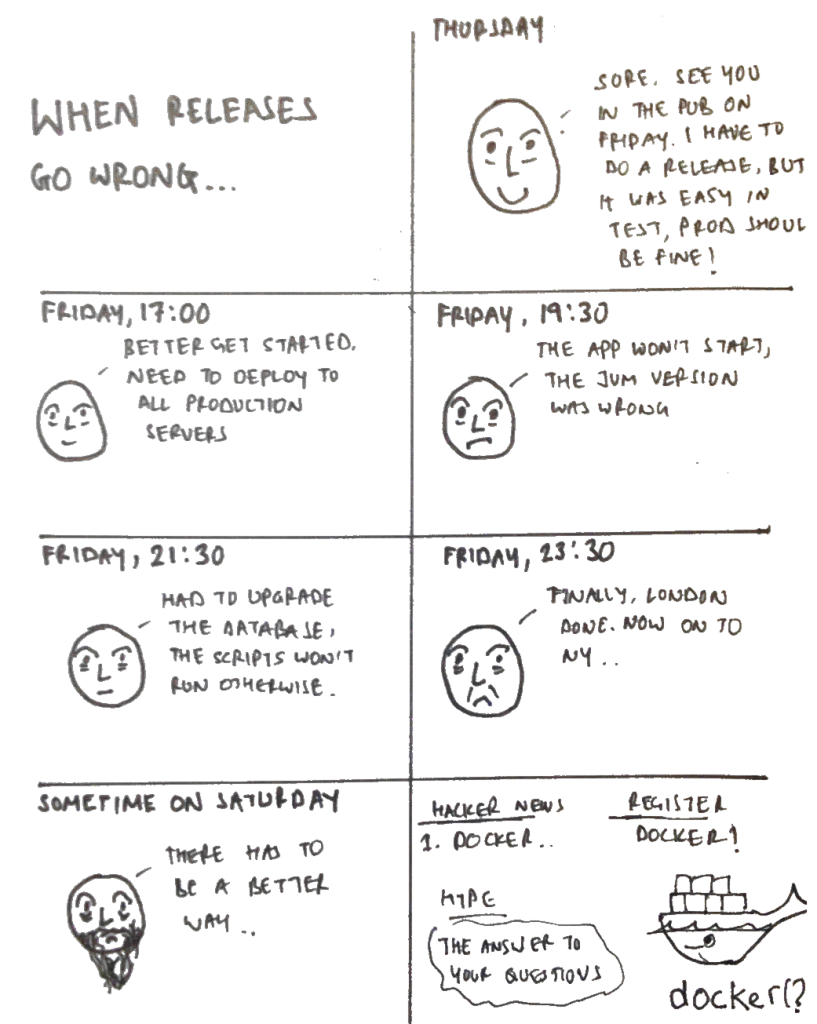 WHEN RELEASES
GO WRONG...
THURSDAY
SORE. SEE YOU
IN THE PUB ON
FRIDAY. I HAVE TO
DO A RELEASE, BUT
IT WAS EASY IN
TEST, PROD SHOUL
BE FINE!
FRIDAY, 17:00
BETTER GET STARTED.
NEED TO DEPLOY TO
ALL PRODUCTION
SERVERS
FRIDAY, 19:30
THE APP WON'T START,
THE JVM VERSION
WAS WRONG
FRIDAY, 21:30
HAD TO UPGRADE
THE DATABASE,
THE SCRIPTS WON'T
RUN OTHERWISE.
FRIDAY, 23:30
FINALLY, LONDON
DONE. NOW ON TO
NY..
SOMETIME ON SATURDAY
THERE HAS TO
BE A BETTER
WAY..
HACKER NEWS
1. DOCKER..
REGISTER
DOCKER!
HYPE
THE ANSWER TO
YOUR QUESTIONS
docker(?